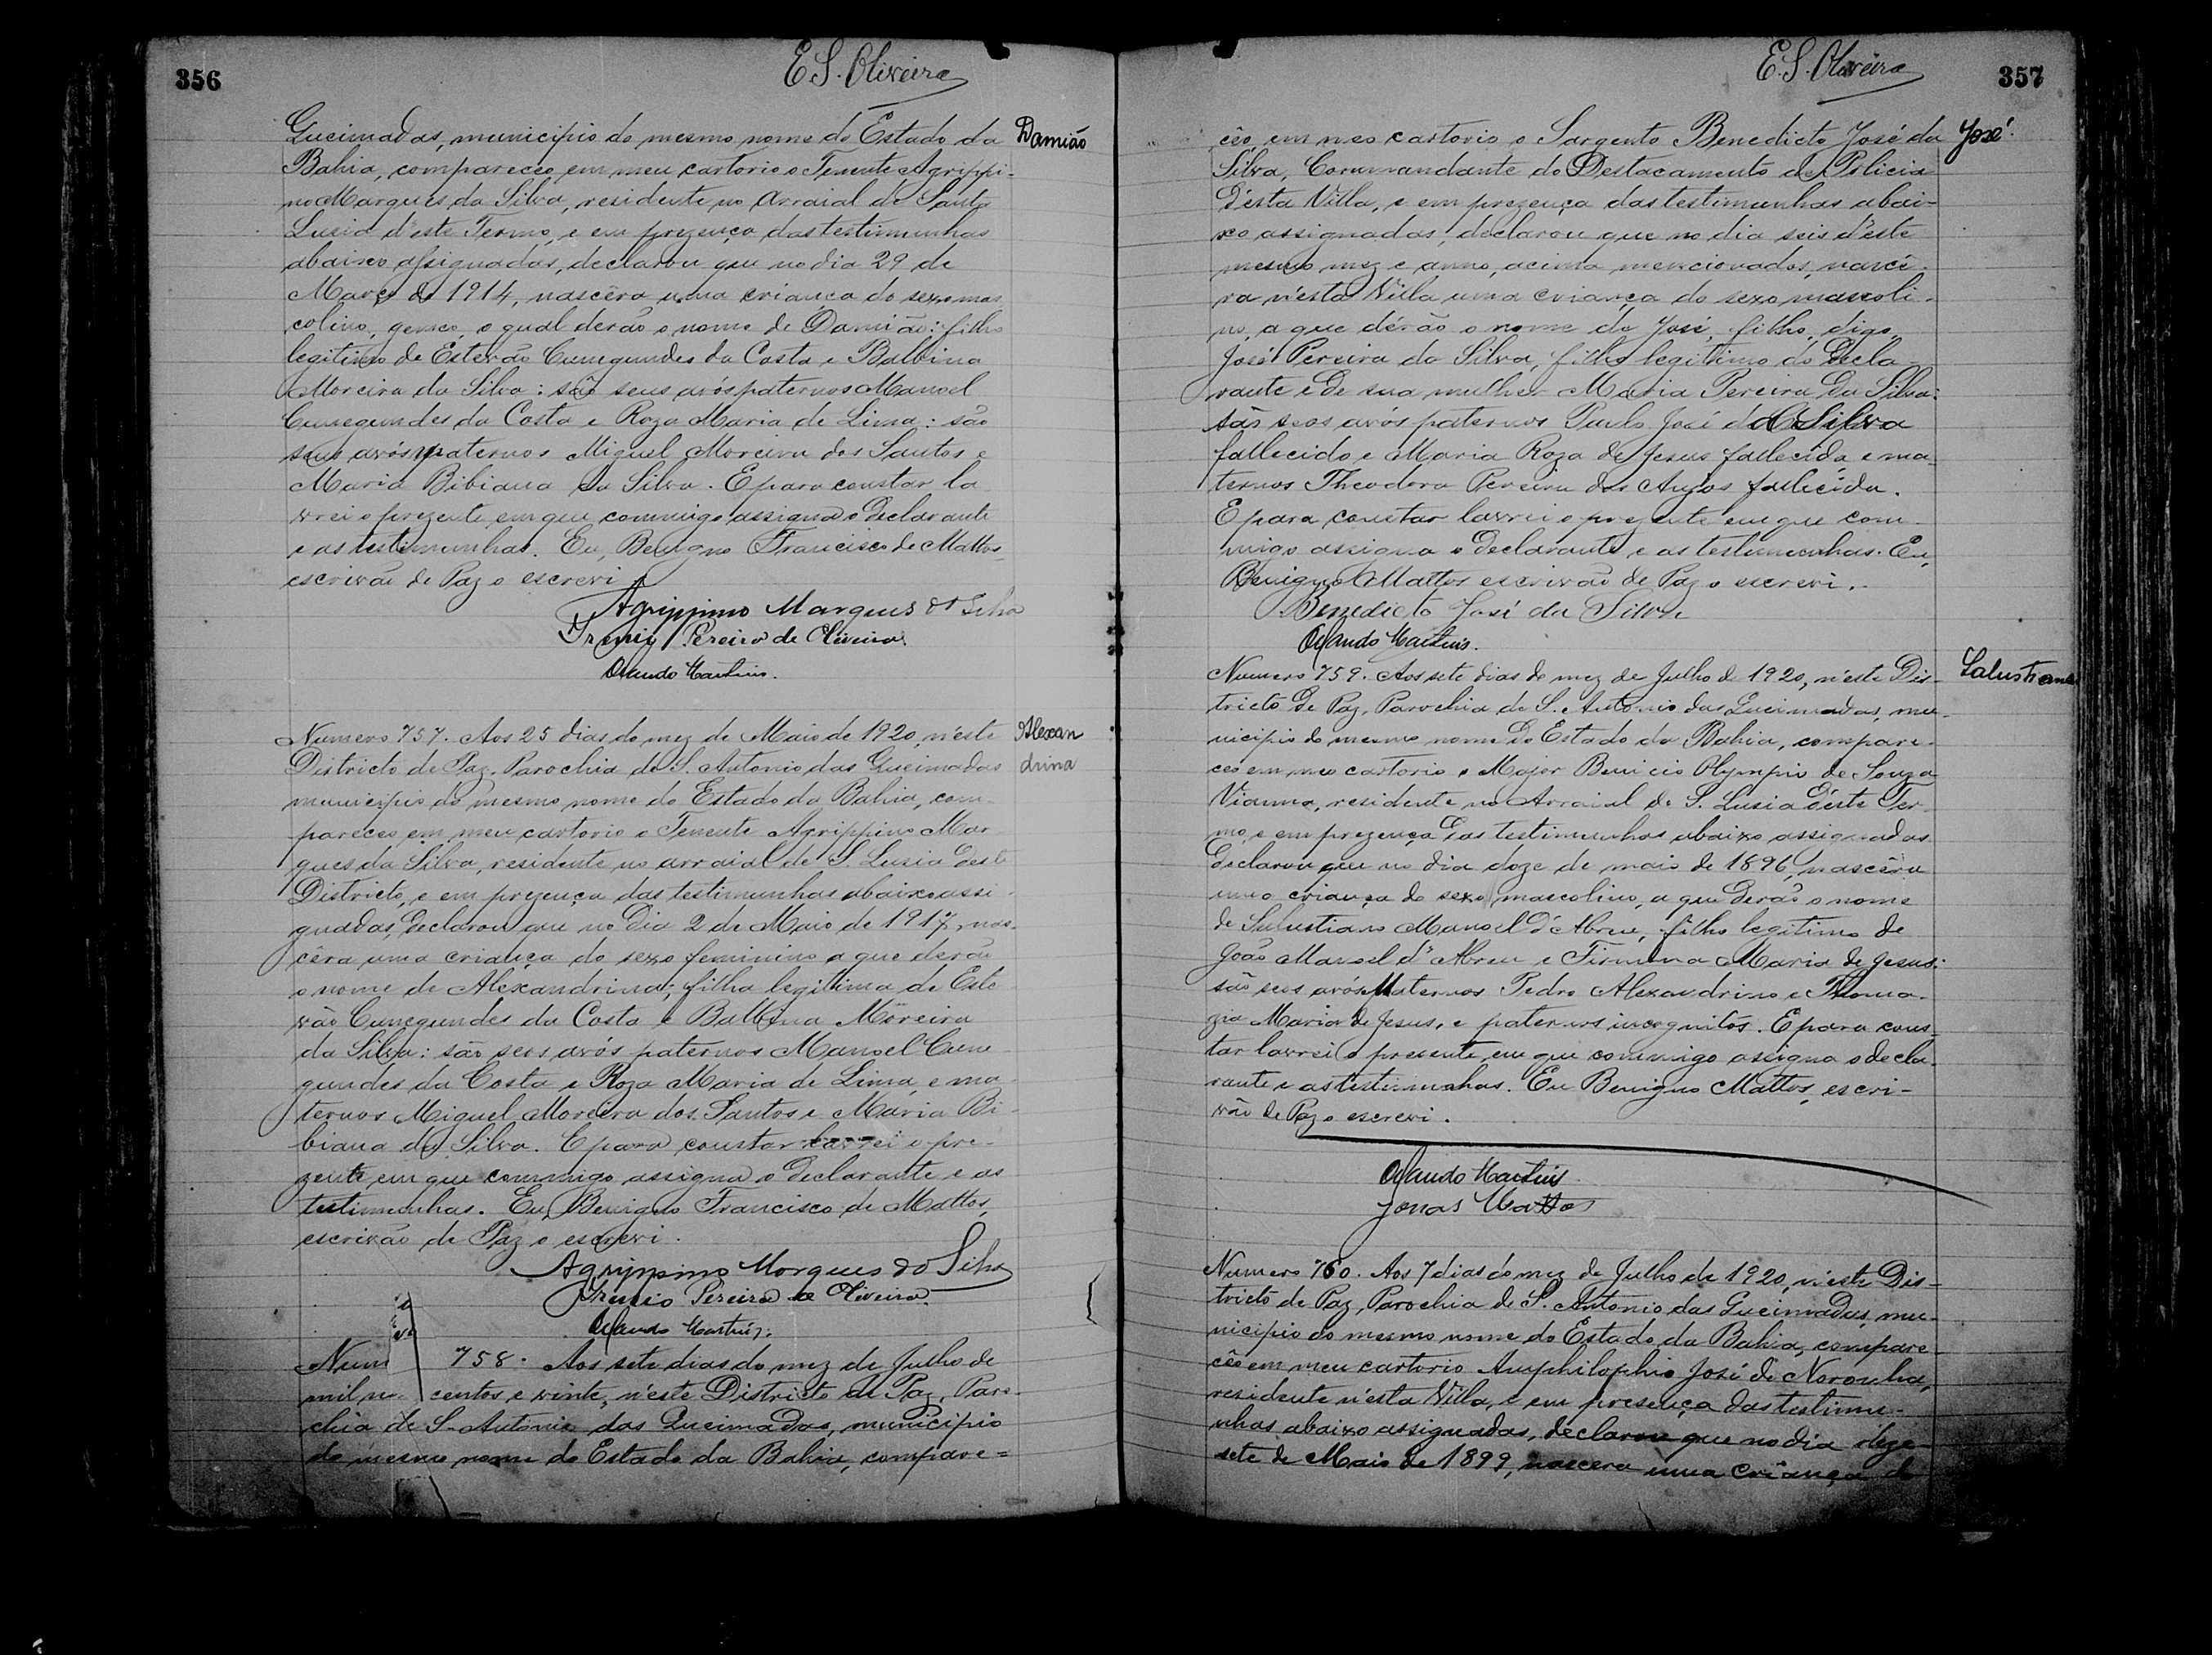 356
E. S. Oliveira
Queimadas, municipio do mesmo nome do Estado da
Damião
Bahia, compareceo em meu cartorio o Tenente Agrippi-
no Marques da Silva, residente no Arraial de Santa
Lusia d'este Termo, e em prezença das testimunhas
abaixo assignadas, declarou que no dia 29 de
Março de 1914, nascêra uma criança do sexo mas
colino, gemeo, o qual derão o nome de Damião: filho
legitimo de Estevão Cunegundes da Costa e Balbina
Moreira da Silva: são seus avós paternos Manoel
Cunegundes da Costa e Roza Maria de Lima: são
seus avós maternos Miguel Moreira dos Santos e
Maria Bibiana da Silva. E para constar la
vrei o prezente em que commigo assigna o declarante
e as testimunhas. Eu, Benigno Francisco de Mattos
escrivão de Paz o escrevi
Agrippino Marques da Silva
Irenio Pereira de Oliveira.
Orlando Martins.
Numero 757. Aos 25 dias do mez de Maio de 1920, n'este
Alexan
drina
Districto de Paz, Parochia de S. Antonio das Queimadas
municipio do mesmo nome do Estado da Bahia, com-
pareceo em meu cartorio o Tenente Agrippino Mar
ques da Silva, residente no arraial de S. Lusia deste
Districto, e em prezença das testimunhas abaixo assi-
gnadas, declarou que no dia 2 de Maio de 1917, nas-
cêra uma criança do sexo feminino a que derão
o nome de Alexandrina; filha legitima de Este
vão Cunegundes da Costa e Balbina Moreira
da Silva: são seos avós paternos Manoel Cune
gundes da Costa e Roza Maria de Lima, e ma-
ternos Miguel Moreira dos Santos e Maria Bi-
biana da Silva. E para constar lavrei o pre-
zente em que commigo assigna o declarante e as
testimunhas. Eu, Benigno Francisco de Mattos,
escrivão de Paz o escrevi.
Agrippino Marques da Silva
Irenio Pereira de Oliveira.
Orlando Martins.
Num 758. Aos sete dias do mez de Julho de
mil no centos e vinte, n'este Districto de Paz, Paro-
chia de S. Antonio das Queimadas, municipio
do mesmo nome do Estado da Bahia, compare=
357
E. S. Oliveira
cêo, em meo cartorio o Sargento Benedicto José da
José
Silva, Commandante do Destacamento de Policia
d'esta Villa, e em prezença das testimunhas abai-
xo assignadas, declarou que no dia seis d'este
mesmo mez e anno, acima mencionados, nascê-
ra n'esta Villa uma criança do sexo mascoli-
no, a que dérão o nome de José, filho, digo,
José Pereira da Silva, filho legitimo do decla-
rante e de sua mulher Maria Pereira da Silva:
são seos avós paternos Paulo José da Silva
fallecido e Maria Roza de Jesus fallecida e ma-
ternos Theodora Pereira dos Anjos fallecida.
E para constar lavrei o prezente em que com-
migo assigna o declarante e as testimunhas. Eu,
Benigno Mattos escrivão de Paz o escrevi.
Benedicto José da Silva
Orlando Martins.
Numero 759. Aos sete dias do mez de Julho de 1920, n'este Dis-
Salustiano
tricto de Paz, Parochia de S. Antonio das Queimadas, mu-
nicipio do mesmo nome do Estado da Bahia, compare-
ceo em meo cartorio o Major Benicio Olympio de Souza
Vianna, residente no Arraial de S. Lusia d'este Ter-
mo, e em prezença das testimunhas abaixo assignadas
declarou que no dia doze de maio de 1896, nascêra
uma criança do sexo mascolino, a que derão o nome
de Salustiano Manoel d'Abreu, filho legitimo de
João Manoel d'Abreu e Firmina Maria de Jesus:
são seos avós Maternos Pedro Alexandrino e Thoma-
zia Maria de Jesus, e paternos incognitos. E para cons-
tar lavrei o presente, em que commigo assigna o decla-
rante e as testimunhas. Eu Benigno Mattos, escri-
vão de Paz o escrevi.
Orlando Martins
Jonas Mattos
Numero 760. Aos 7 dias do mez de Julho de 1920, n'este Dis-
tricto de Paz, Parochia de S. Antonio das Queimadas, mu-
nicipio do mesmo nome do Estado da Bahia, compare-
cêo em meu cartorio Amphilophio José de Noronha,
residente n'esta Villa, e em presença das testimu-
nhas abaixo assignadas, declarou que no dia deze-
sete de Maio de 1899, nascera uma criança do